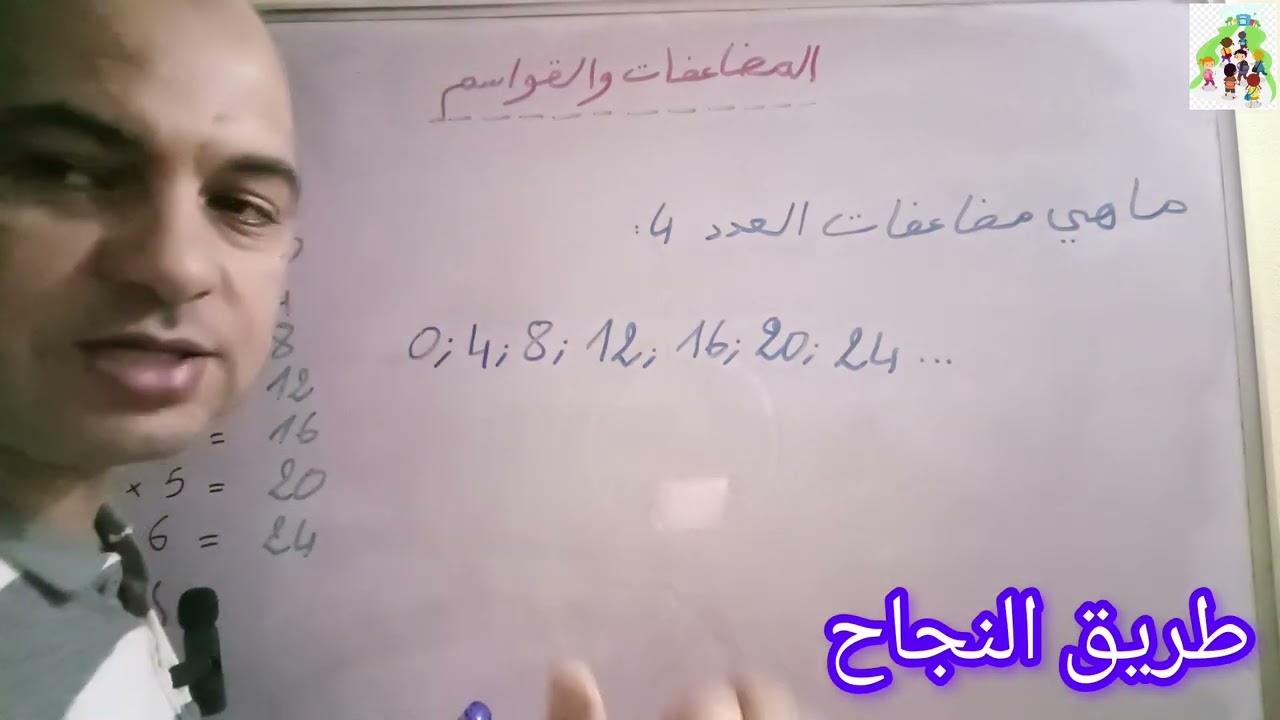 المضاعفات والقواسم
ما هي مضاعفات العدد 4:
0; 4; 8; 12; 16; 20; 24 ...
8
12
= 16
× 5 = 20
6 = 24
طريق النجاح